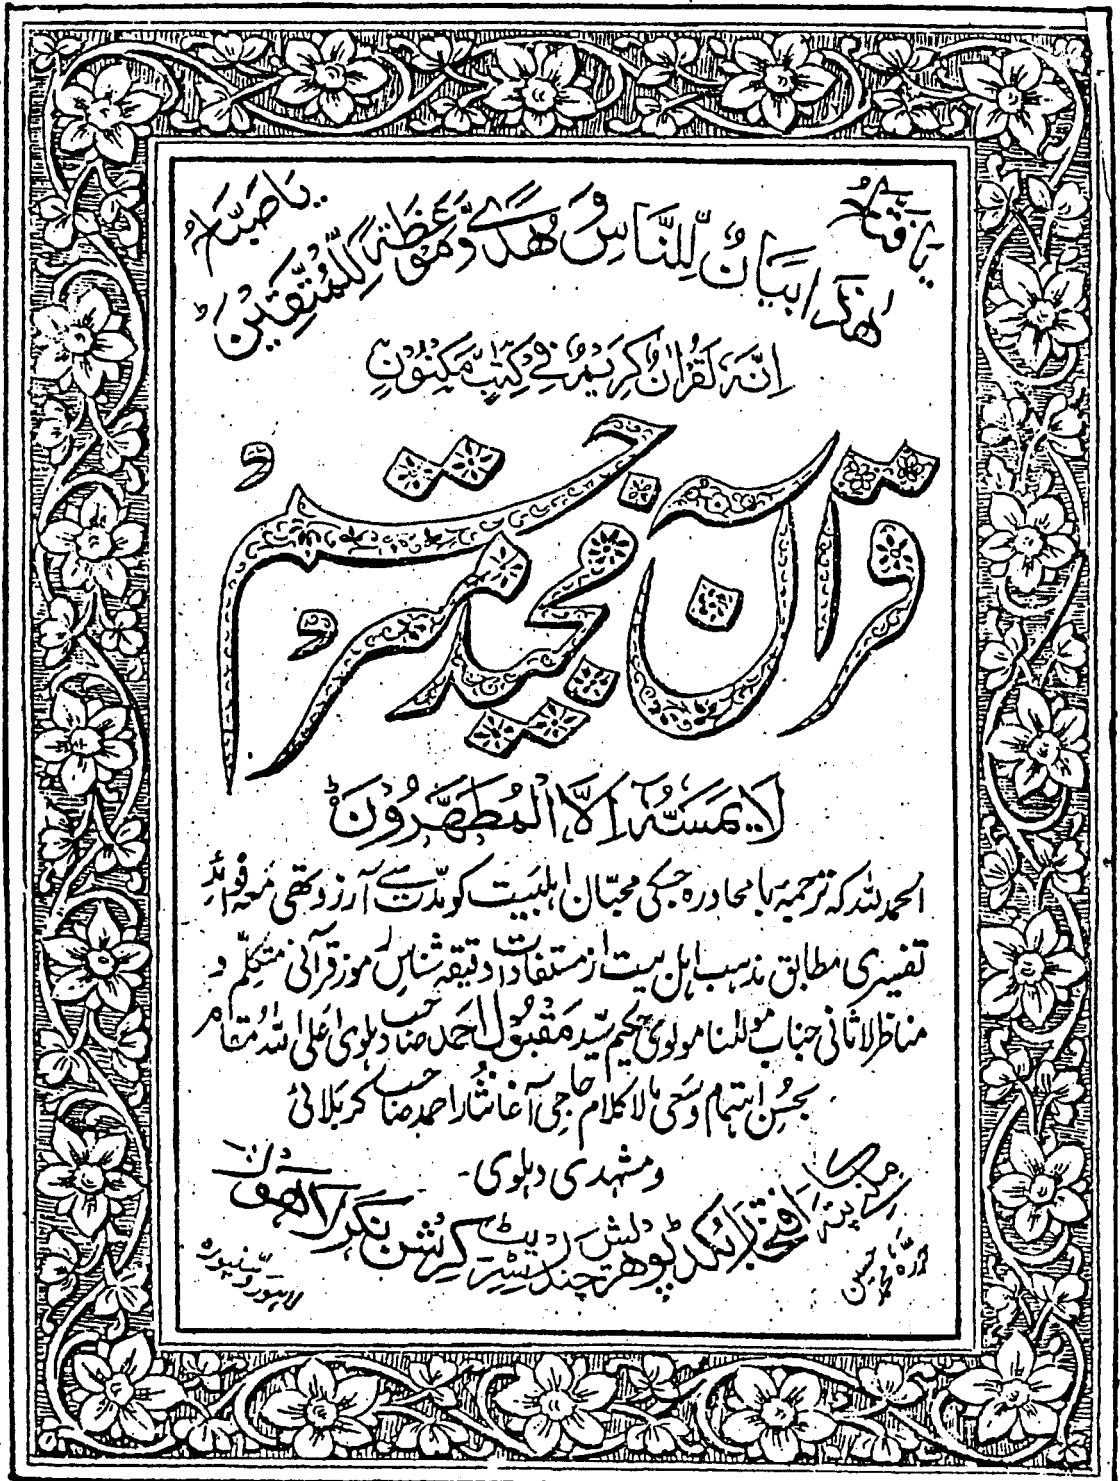 يَا فَتَّاحُ
يَا صَبَّاحُ
هٰذَا بَيَانٌ لِّلنَّاسِ وَهُدًى وَّمَوْعِظَةٌ لِّلْمُتَّقِيْنَ ط
اِنَّهٗ لَقُرْاٰنٌ كَرِيْمٌ فِيْ كِتٰبٍ مَّكْنُوْنٍ
قرآن مجید مترجم
لَا يَمَسُّهٗٓ اِلَّا الْمُطَهَّرُوْنَ ط
الحمد للہ کہ ترجمۂ بامحاورہ جسکی محبّان اہلبیت کو مدّت سے آرزو تھی معہ فوائد
تفسیری مطابق مذہب اہل بیت از مستفادات دقیقہ شناس رموز قرآنی متکلّم و
مناظر لاثانی جناب مولٰنا مولوی حکیم سیّد مقبول احمد صاحب دہلوی اعلی اللہ مقامہ
بحسن اہتمام و سعی مالا کلام حاجی آغا نثار احمد صاحب کربلائی
و مشہدی دہلوی۔
ملنے کا پتہ افتخار بکڈپو ہرتچند سٹریٹ کرشن نگر لاہور
محمد حسین
لاہور